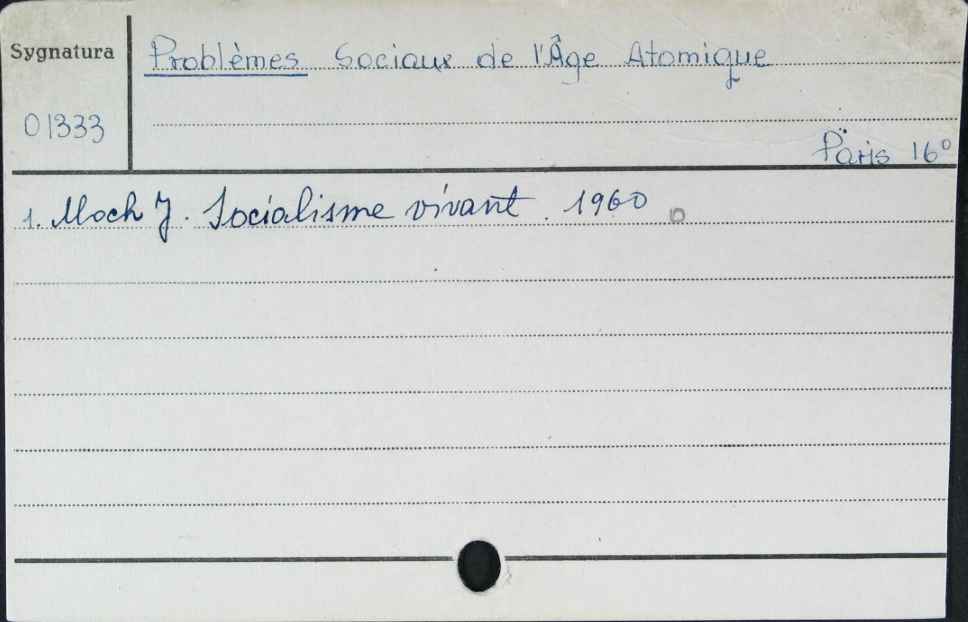 Sygnatura
Problèmes Sociaux de l'Âge Atomique
01333
Paris 16°
1. Moch J. Socialisme vivant. 1960